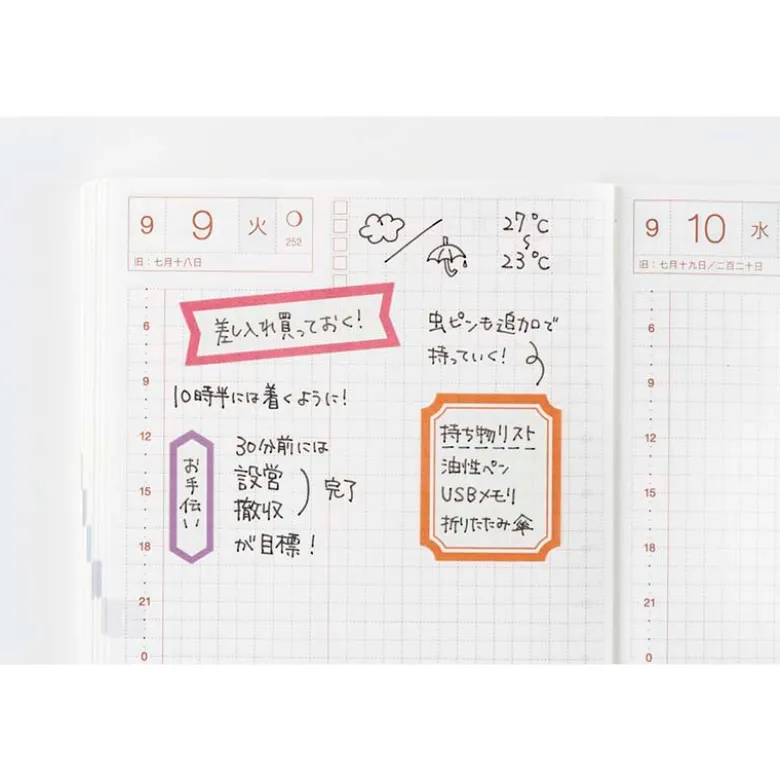 9 9 火
252
旧：七月十八日
27℃
〜
23℃
差し入れ買っておく!
虫ピンも追加で
持っていく!
10時半には着くように!
お手伝い
30分前には
設営
撤収
完了
が目標!
持ち物リスト
油性ペン
USBメモリ
折りたたみ傘
6
9
12
15
18
21
0
9 10 水
旧：七月十九日／二百二十日
6
9
12
15
18
21
0